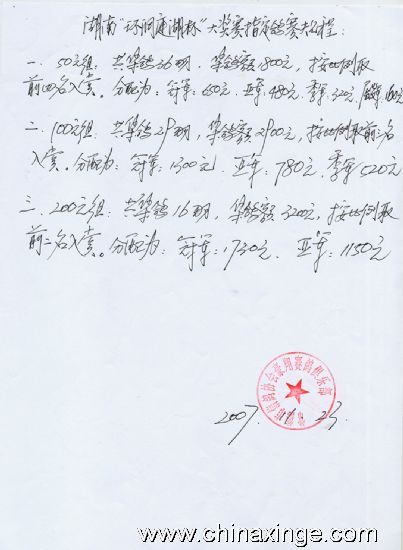 湖南"环洞庭湖杯"大奖赛指定鸽赛夫规程:
一. 50元组: 共集鸽36羽, 集鸽额1800元, 按比例取
前四名入赏。分配为: 冠军: 650元. 亚军: 480元. 季军: 320元.
二. 100元组. 共集鸽29羽, 集鸽额2900元, 按比例取前三名
入赏。分配为: 冠军: 1300元. 亚军: 780元. 季军: 520元
三. 200元组. 共集鸽16羽, 集鸽额3200元, 按比例取
前二名入赏。分配为: 冠军: 1730元. 亚军: 1150元
鸽协会豪翔赛鸽俱乐部
2007. 11. 23
www.chinaxinge.com